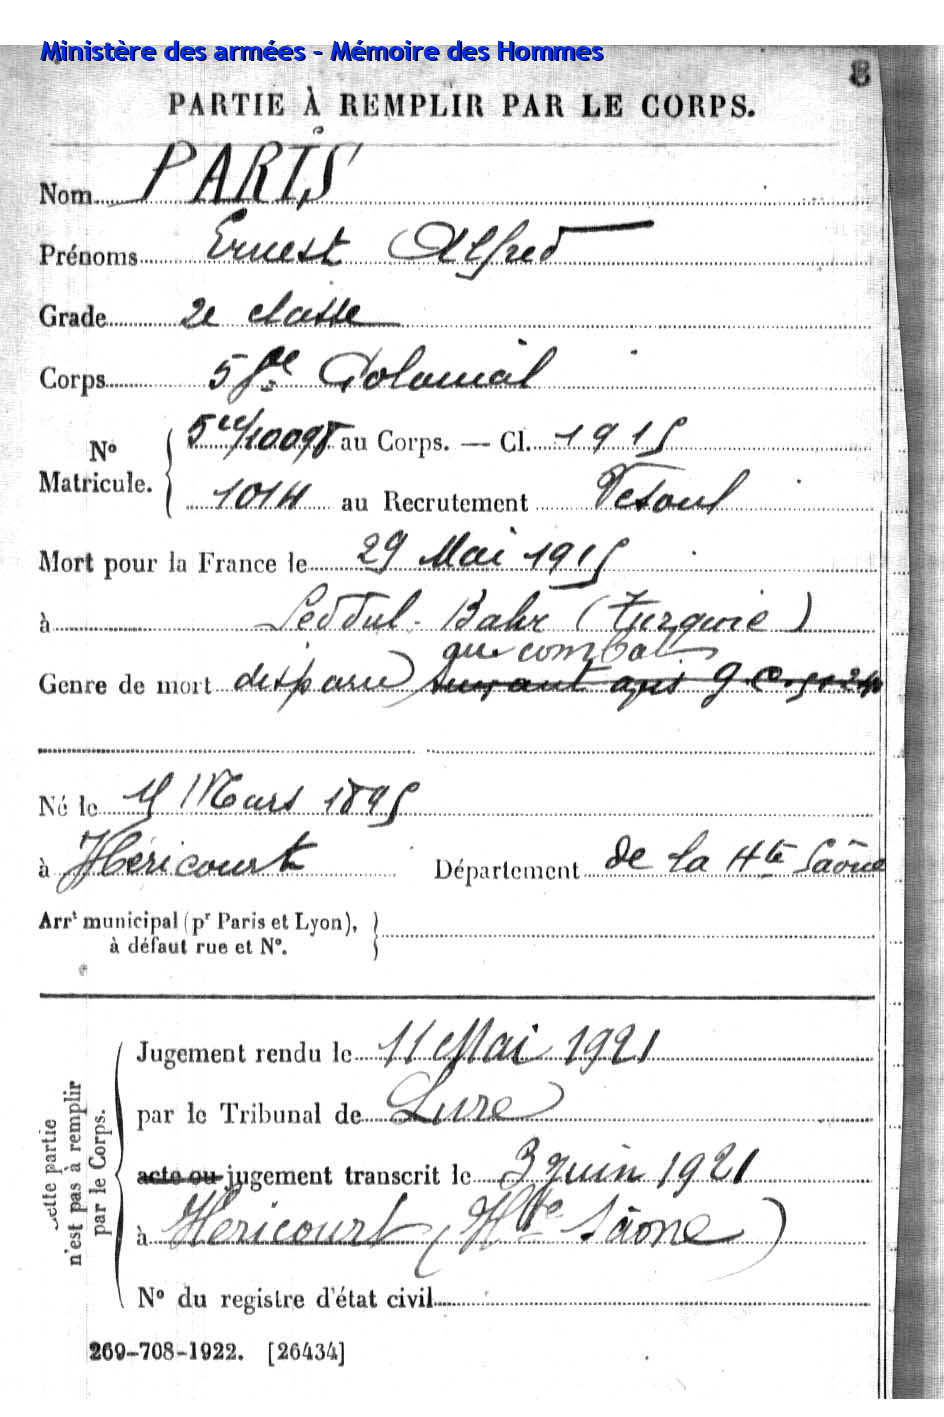 Ministère des armées - Mémoire des Hommes
8
PARTIE À REMPLIR PAR LE CORPS.
Nom PARIS
Prénoms Ernest Alfred
Grade 2e classe
Corps 5 Rt Colonial
No Matricule. 5ce/10098 au Corps. — Cl. 1915
1014 au Recrutement Vesoul
Mort pour la France le 29 Mai 1915
à Seddul-Bahr (Turquie)
au combat
Genre de mort disparu
Né le Mars 1895
à Héricourt Département de la Hte Saône
Arrt municipal (pr Paris et Lyon),
à défaut rue et No.
Cette partie n'est pas à remplir par le Corps.
Jugement rendu le 11 Mai 1921
par le Tribunal de Lure
acte ou jugement transcrit le 3 juin 1921
à Héricourt (Hte Saône)
No du registre d'état civil
269-708-1922. [26434]